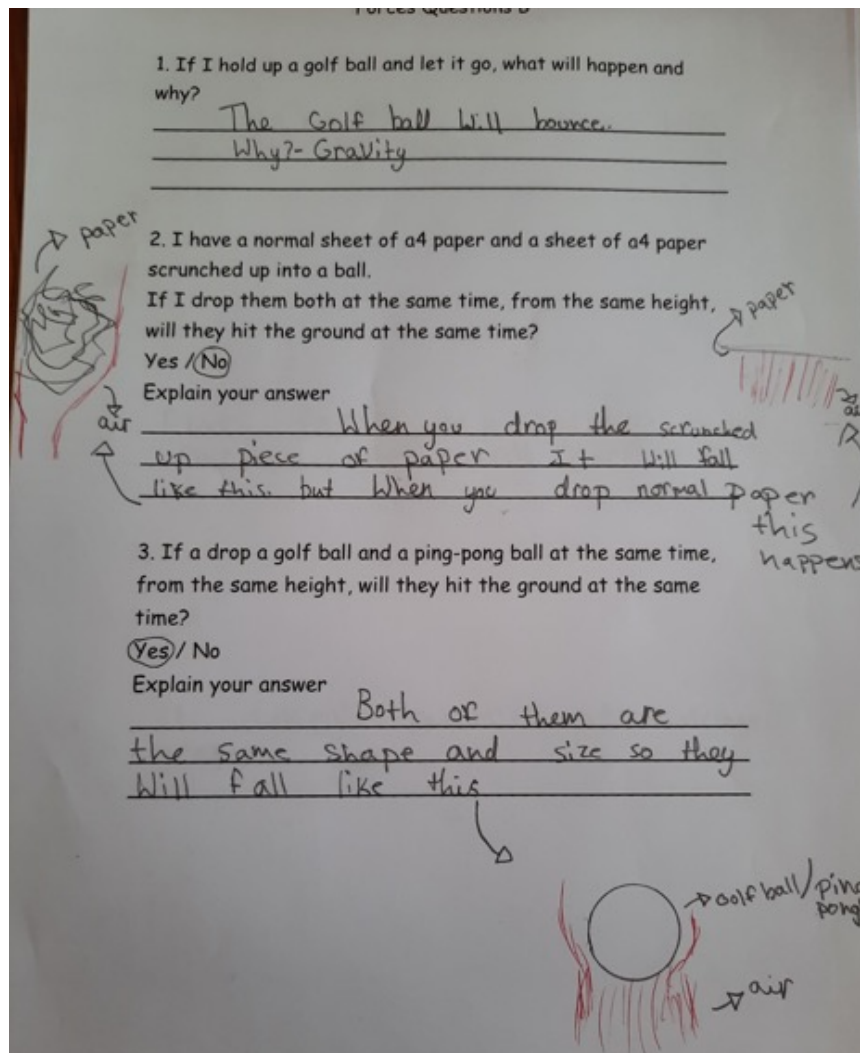 Forces Questions B
1. If I hold up a golf ball and let it go, what will happen and
why?
The Golf ball Will bounce.
Why?- Gravity
paper
2. I have a normal sheet of a4 paper and a sheet of a4 paper
scrunched up into a ball.
If I drop them both at the same time, from the same height,
will they hit the ground at the same time?
paper
Yes / No
Explain your answer
air
When you drop the scrunched
up piece of paper It Will fall
like this. but When you drop normal paper
this
happens
3. If a drop a golf ball and a ping-pong ball at the same time,
from the same height, will they hit the ground at the same
time?
Yes / No
Explain your answer
Both of them are
the same shape and size so they
Will fall like this
Golf ball/
air